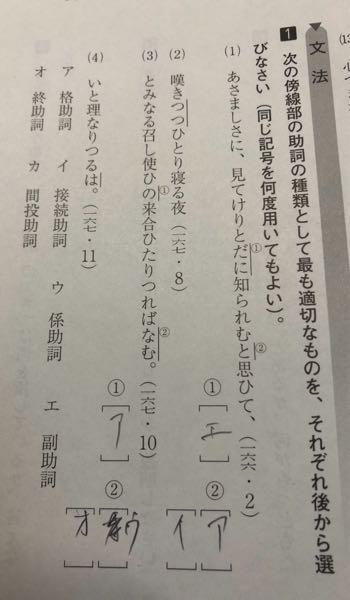 文法
1 次の傍線部の助詞の種類として最も適切なものを、それぞれ後から選
びなさい（同じ記号を何度用いてもよい）。
(1) あさましさに、見てけりとだに知られむと思ひて、（一六六・2） ① ② ①［エ］ ②［ア］
(2) 嘆きつつひとり寝る夜（一六七・8）［イ］
(3) とみなる召し使ひの来合ひたりつればなむ。（一六七・10） ① ② ①［ア］ ②［ウ］
(4) いと理なりつるは。（一六七・11）［オ］
ア 格助詞 イ 接続助詞 ウ 係助詞 エ 副助詞
オ 終助詞 カ 間投助詞